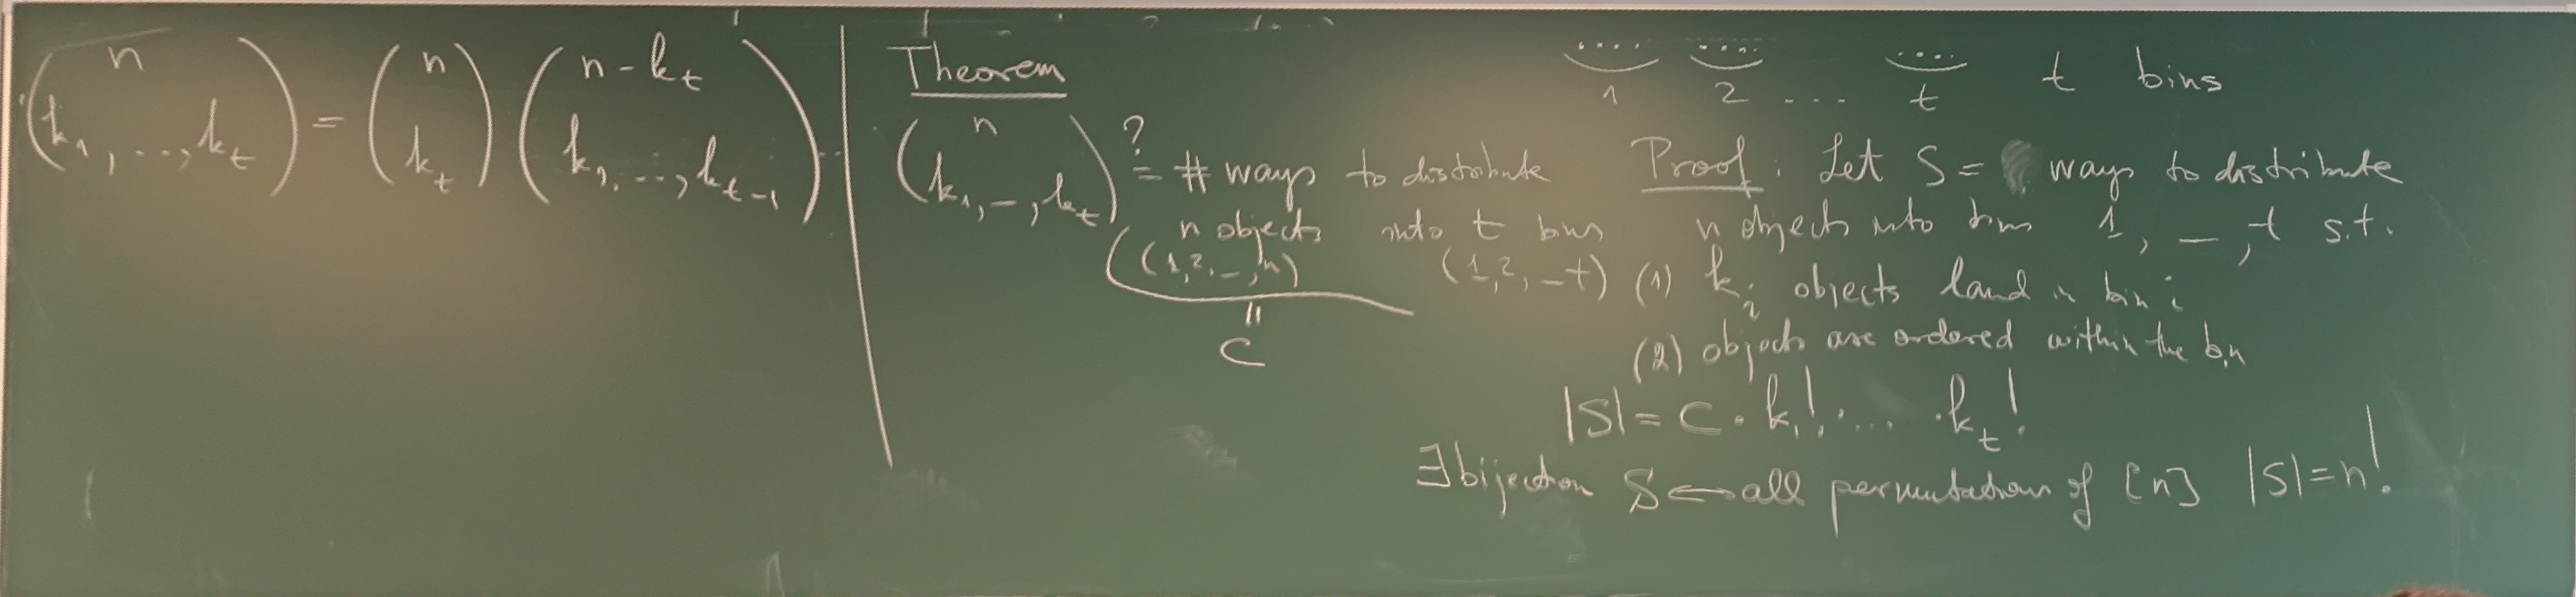 (n / k₁, ..., k_t) = (n / k_t) (n - k_t / k₁, ..., k_{t-1})
Theorem
(n / k₁, –, k_t) ?= # ways to distribute
n objects into t bins
(1, 2, –, n) (1, 2, – t)
"
C
1 2 ... t t bins
Proof: Let S = ways to distribute
n objects into bins 1, –, t s.t.
(1) k_i objects land in bin i
(2) objects are ordered within the bin
|S| = C · k₁! · ... · k_t!
∃ bijection S ↔ all permutations of [n] |S| = n!